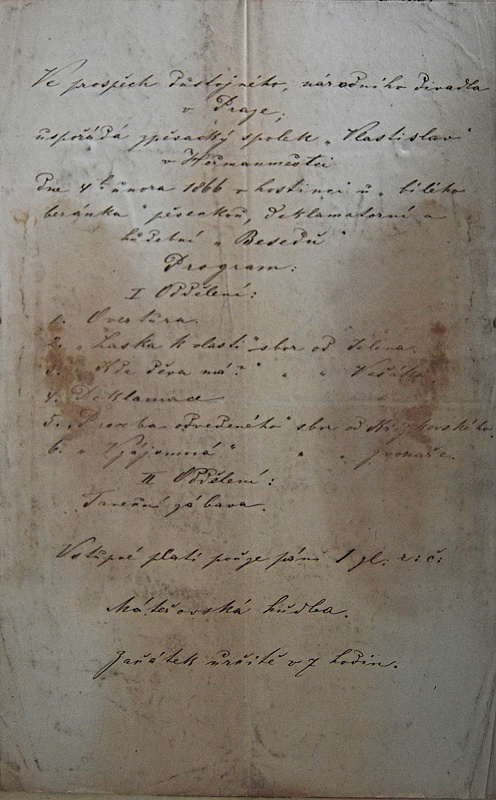 Ve prospěch důstojného, národního divadla
v Praze,
uspořádá zpěvácký spolek „Vlastislav“
v Heřmanměstci
dne 4ho února 1866 v hostinci u „bílého
beránka“ písenkou, deklamatorní a
hudební „Besedu“
Program:
I Oddělení:
1. Overtura.
2. „Láska k vlasti“ sbor od Jelena.
3. „Kde děva má?“ „ „ Vašáka.
4. Deklamace
5. „Prosba odvedeného“ sbor od Křížkovského.
6. „Vzájemná“ „ „ Zvonaře.
II Oddělení:
Taneční zábava.
Vstupné platí pouze páni 1 zl. r: č:
hudba.
Začátek určitě v 7 hodin.